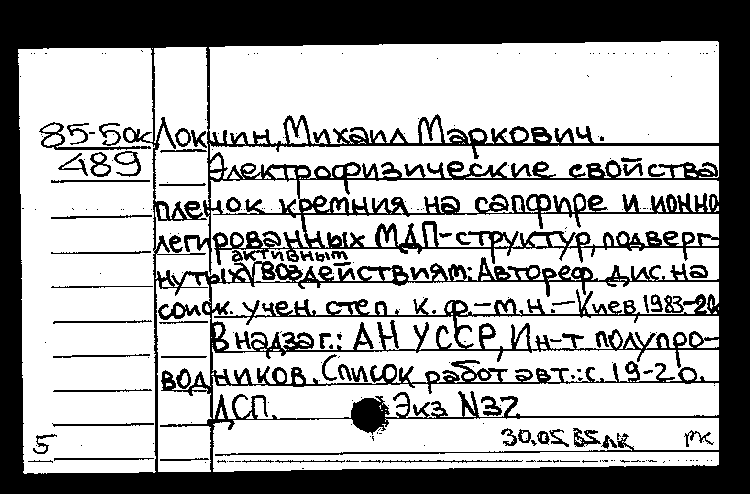 85-5ок Локшин, Михаил Маркович.
489 Электрофизические свойства
пленок кремния на сапфире и ионно
легированных МДП-структур, подверг-
активным
нутых воздействиям: Автореф. дис. на
соиск. учен. степ. к. ф.-м. н. - Киев, 1983-20с
В надзаг.: АН УССР, Ин-т полупро-
водников. Список работ авт.: с. 19-20.
ДСП. Экз N37.
30.05.85 лк
5